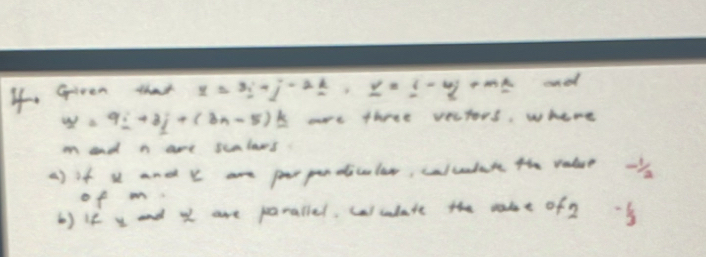 4. Given that u = 3i + j - 2k, v = i - 4j + mk and
w = 9i + 3j + (3n-5)k are three vectors, where
m and n are scalars.
a) if u and v are perpendicular, calculate the value -1/2
of m.
b) if u and w are parallel, calculate the value of n -1/3